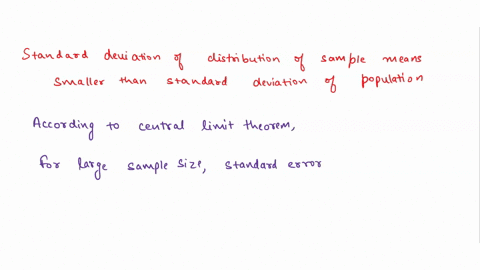 Standard deviation of distribution of sample means
smaller than standard deviation of population
According to central limit theorem,
for large sample size, standard error